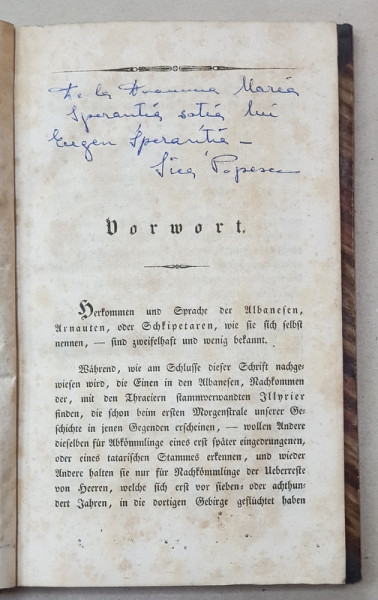 De la Doamna Maria
Sperantia sotia lui
Eugen Sperantia –
Sica Popescu
Vorwort.
Herkommen und Sprache der Albanesen,
Arnauten, oder Schkipetaren, wie sie sich selbst
nennen, — sind zweifelhaft und wenig bekannt.
Während, wie am Schlusse dieser Schrift nachge-
wiesen wird, die Einen in den Albanesen, Nachkommen
der, mit den Thraciern stammverwandten Illyrier
finden, die schon beim ersten Morgenstrale unserer Ge-
schichte in jenen Gegenden erscheinen, — wollen Andere
dieselben für Abkömmlinge eines erst später eingedrungenen,
oder eines tatarischen Stammes erkennen, und wieder
Andere halten sie nur für Nachkömmlinge der Ueberreste
von Heeren, welche sich erst vor sieben- oder achthun-
dert Jahren, in die dortigen Gebirge geflüchtet haben